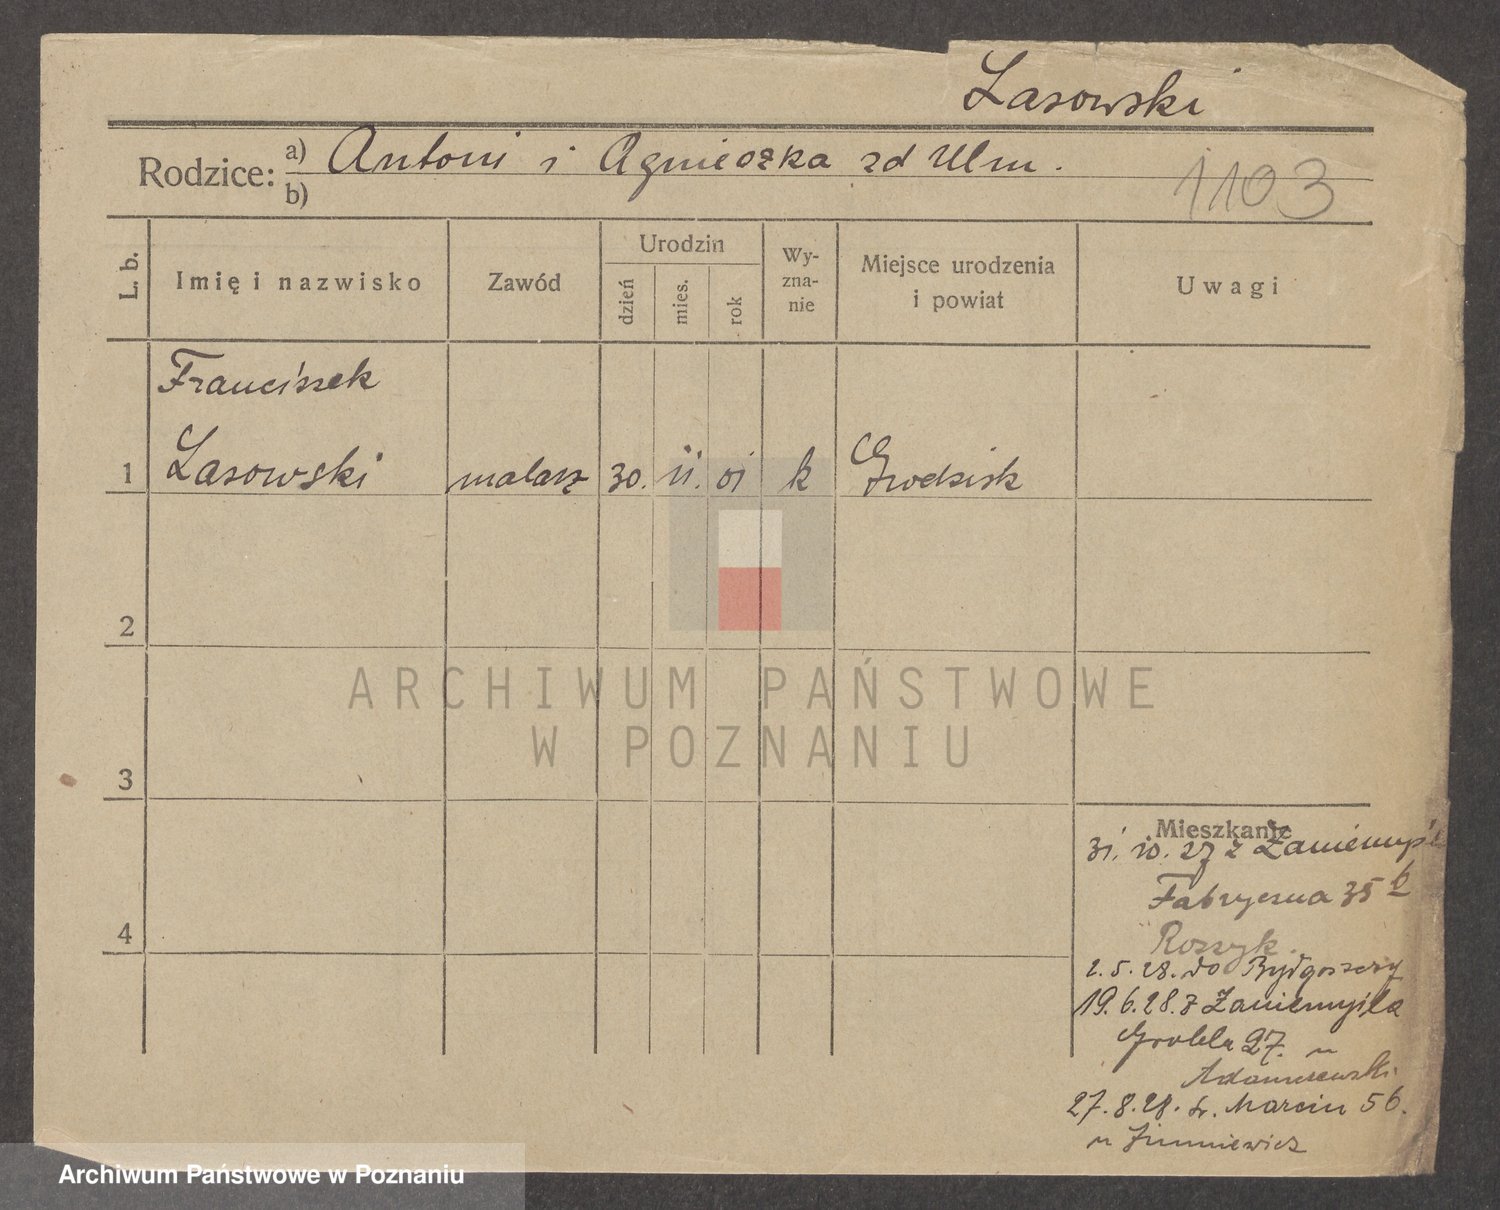 Lasowski
Rodzice: a) Antoni i Agnieszka zd Ulm.
b)
1103
L. b.
Imię i nazwisko
Zawód
Urodzin
dzień
mies.
rok
Wy-
zna-
nie
Miejsce urodzenia
i powiat
Uwagi
Franciszek
1 Lasowski malarz 30. 11. 01 k Grodzisk
2
3
4
Mieszkanie
31. 10. 27 z Zaniemyśla
Fabryczna 35 b
Roszyk.
2. 5. 28. do Bydgoszczy
19. 6. 28. z Zaniemyśla
Grobla 27. u
Adamczewski
27. 8. 28. św. Marcin 56.
u
ARCHIWUM PAŃSTWOWE
W POZNANIU
Archiwum Państwowe w Poznaniu